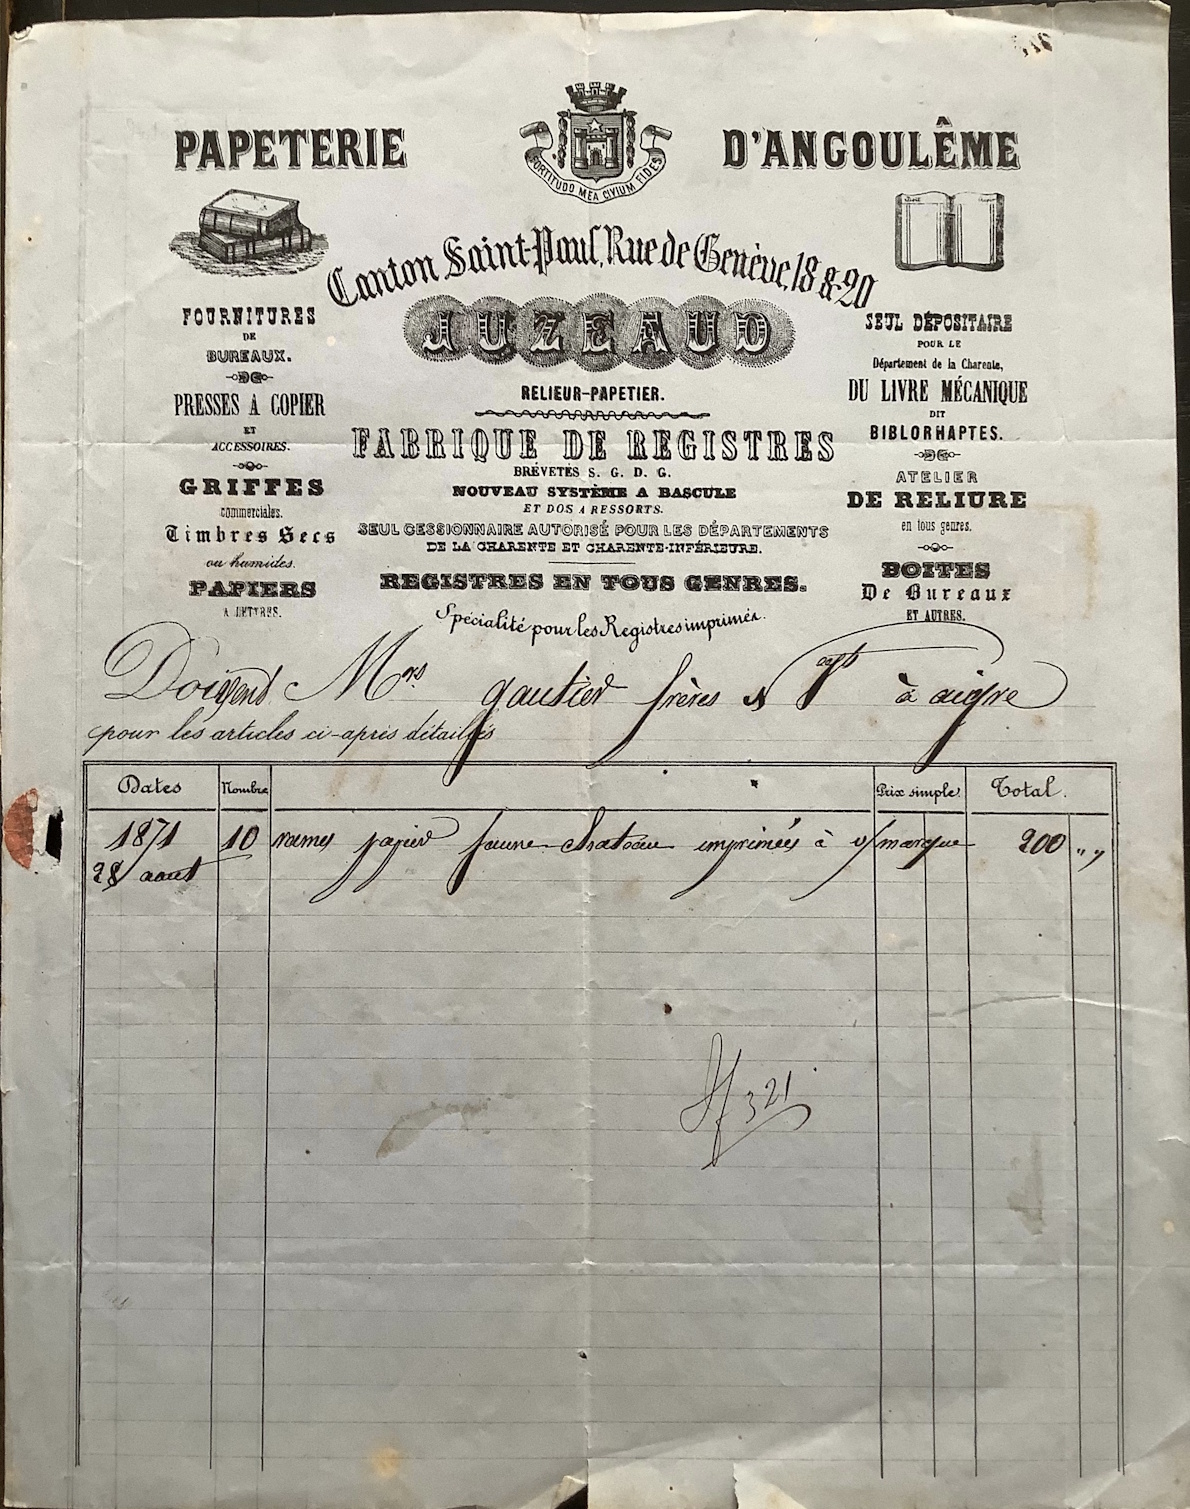 PAPETERIE D'ANGOULÊME
FORTITUDO MEA CIVIUM FIDES
Canton Saint-Paul, Rue de Genève, 18 & 20
JUZEAUD
RELIEUR-PAPETIER.
FABRIQUE DE REGISTRES
BRÉVETÉS S. G. D. G.
NOUVEAU SYSTÈME A BASCULE
ET DOS A RESSORTS.
SEUL CESSIONNAIRE AUTORISÉ POUR LES DÉPARTEMENTS
DE LA CHARENTE ET CHARENTE-INFÉRIEURE.
REGISTRES EN TOUS GENRES.
Spécialité pour les Registres imprimés.
FOURNITURES
DE
BUREAUX.
PRESSES A COPIER
ET
ACCESSOIRES.
GRIFFES
commerciales.
Timbres Secs
ou humides.
PAPIERS
A LETTRES.
SEUL DÉPOSITAIRE
POUR LE
Département de la Charente,
DU LIVRE MÉCANIQUE
DIT
BIBLORHAPTES.
ATELIER
DE RELIURE
en tous genres.
BOITES
De Bureaux
ET AUTRES.
Doivent Mrs. gautier frères & à aigre
pour les articles ci-après détaillés
Dates Nombre Prix simple Total.
1871 10 rames papier jaune imprimées à v/ marque 200 " "
28 aout
321